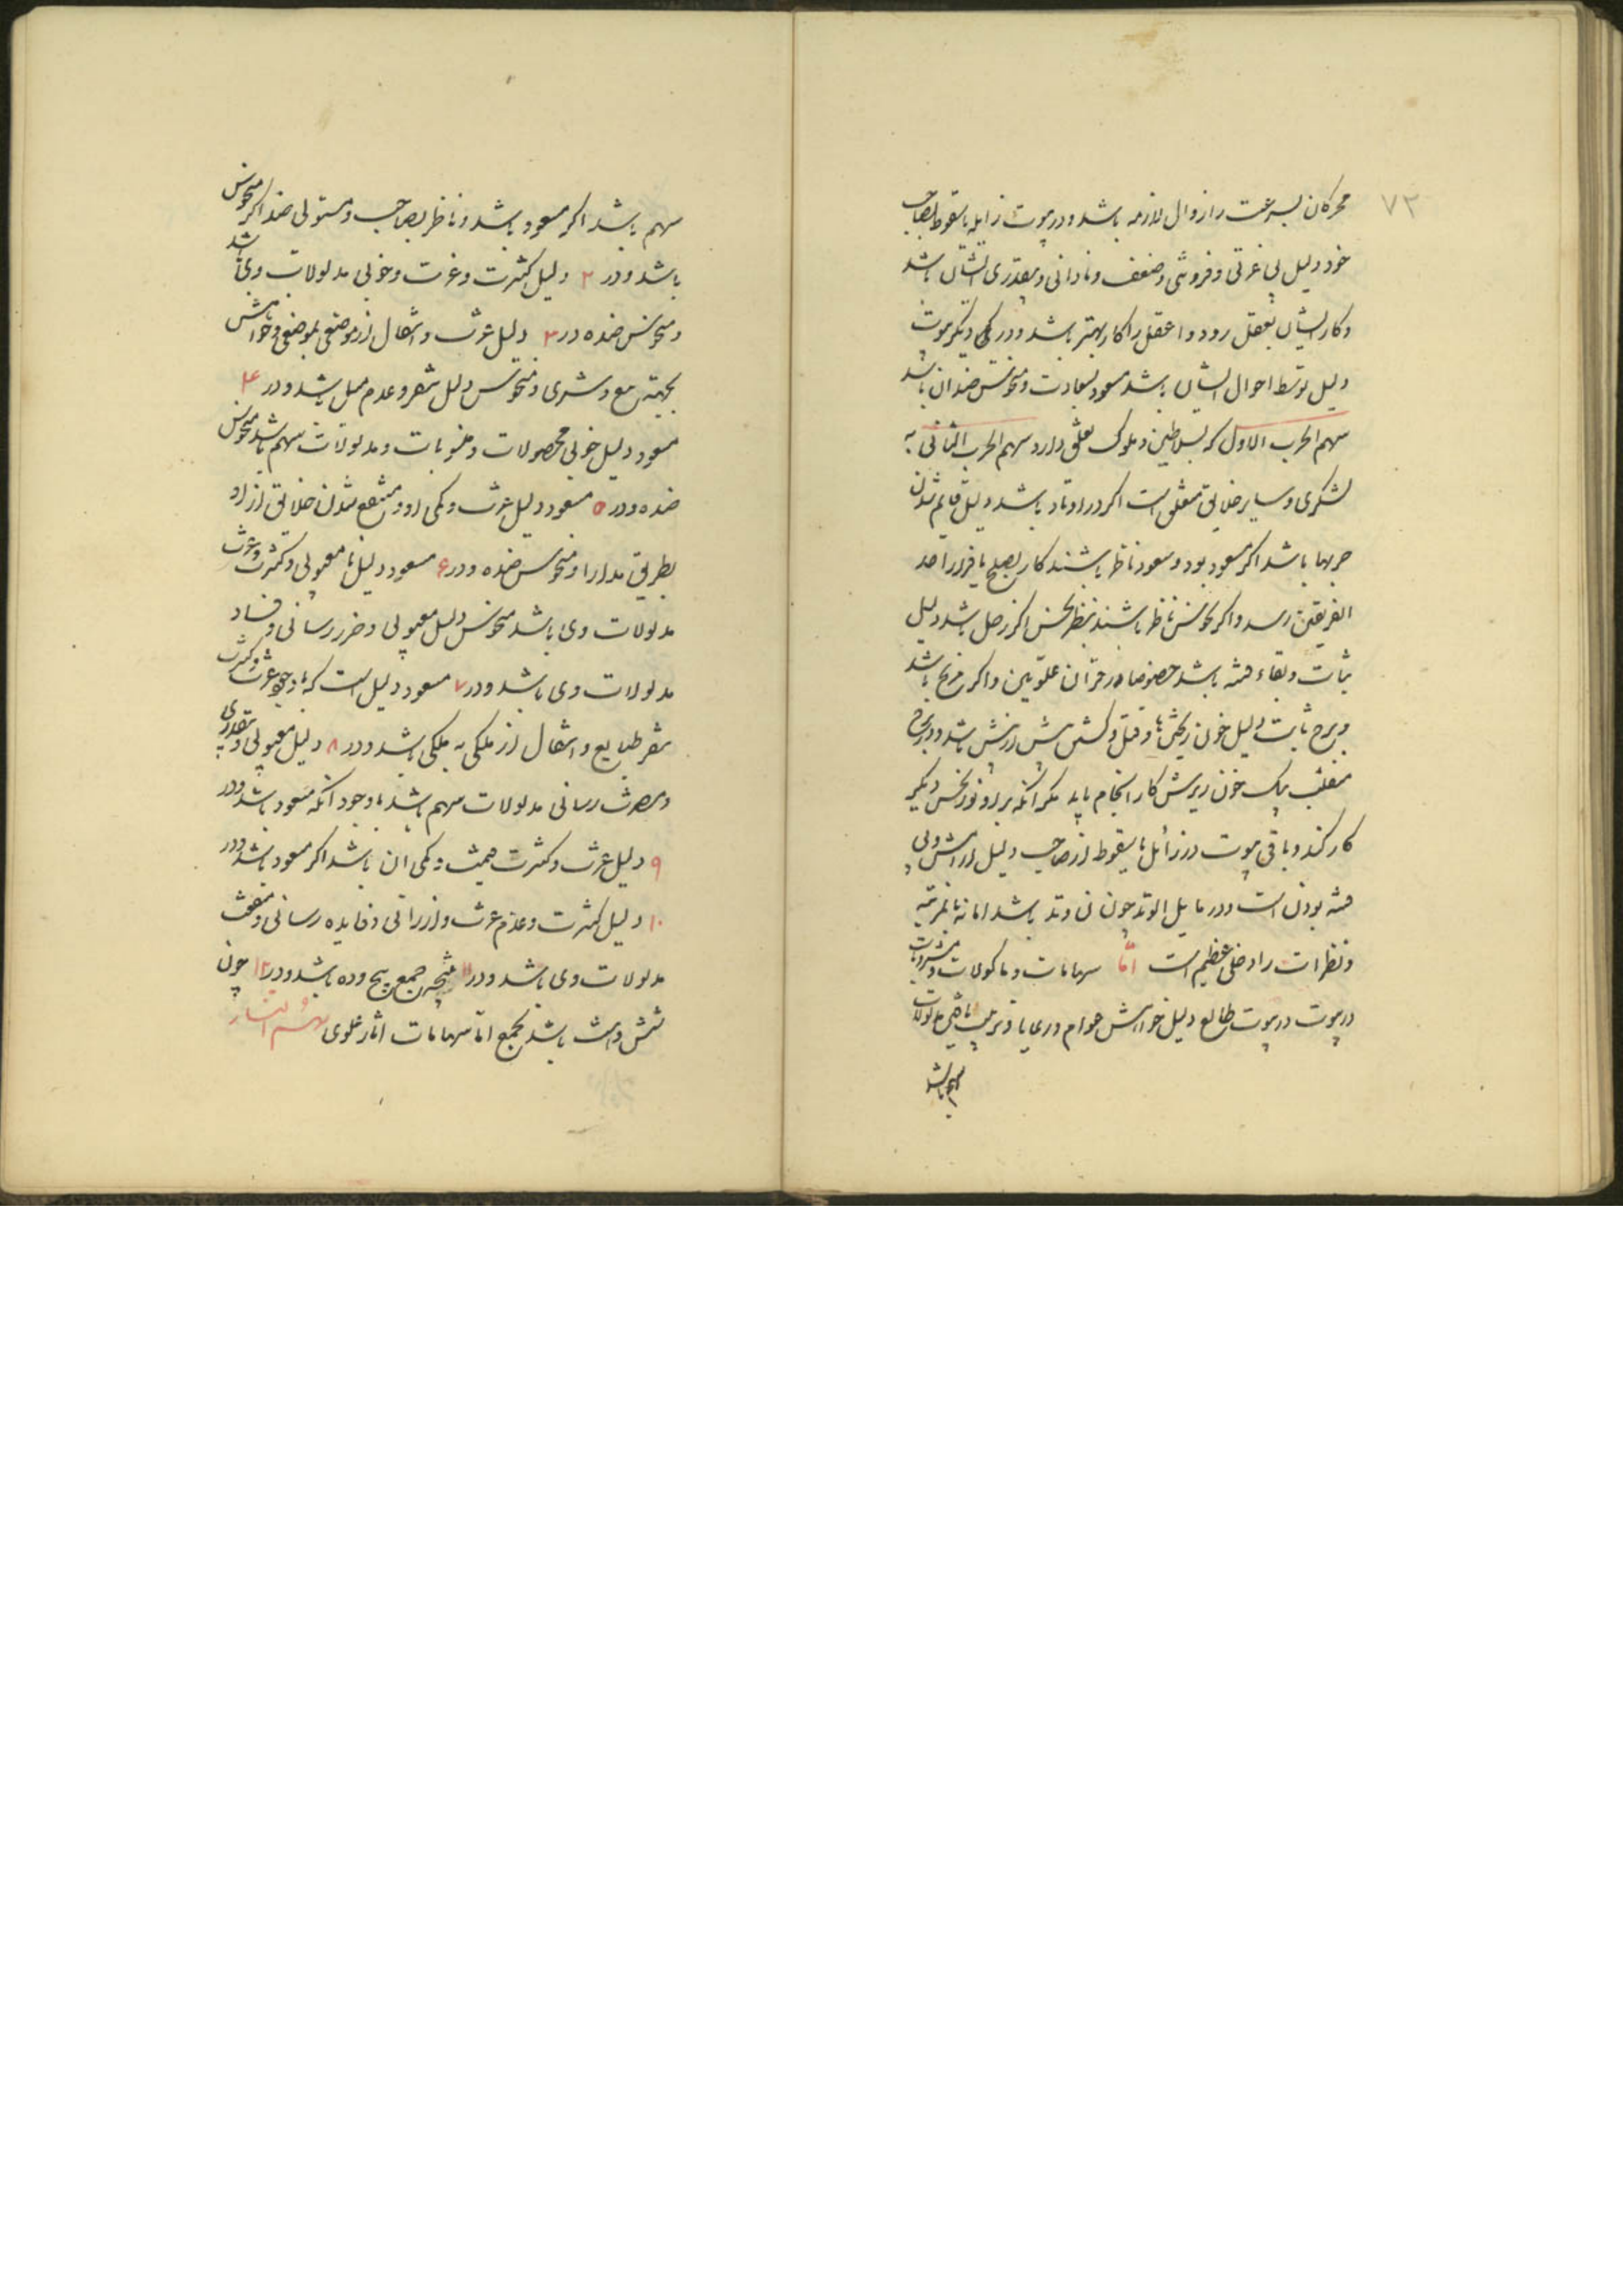 ۷۳
محرکان بسرعت را زوال لازمه باشد و در بیوت زایله یا سقوط بصاحب
خود دلیل بی عزتی و فروشی و ضعف و نادانی و بیقدری ایشان باشد
و کار ایشان بعقل رود و اعقل را کار بهتر باشد و در دیگر بیوت
دلیل توسط احوال ایشان باشد مسعود بسعادت و منحوس ضد ان باشد
سهم الحرب الاول که بسلاطین و ملوک تعلق دارد سهم الحرب الثانی به
لشکری و سایر خلایق متعلق است اکر در اوتاد باشد دلیل قایم شدن
حربها باشد اکر مسعود بود و سعود ناظر باشند کار بصلح یا فرار احد
الفریقین رسد و اکر نحوس ناظر باشند بنظر نحس اکر زحل باشد دلیل
ثبات و بقاء فتنه باشد خصوصا در قران علویین و اکر مریخ باشد
و برج ثابت دلیل خون ریختنها و قتل و کشش باشد و در برج
منقلب بیک خون ریزش کار انجام یابد مکر انکه بر او نور نحس دیکر
کار کند و باقی بیوت در زائل یا سقوط از صاحب دلیل
فتنه بودن است و در مایل الوتد چون ان وتد باشد اما نه بانمرتبه
و نظرات را دخلی عظیم است اما سهامات و ماکولات و مشروبات
در بیوت در بیوت طالع دلیل خواهش عوام و رعایا و مدلولات
سهم باشد
سهم باشد اکر مسعود باشد و ناظر بصاحب و مستولی ضد اکر منحوس
باشد و در ۲ دلیل کثرت و عزت و خوبی مدلولات وی باشد
و منحوس ضده در ۳ دلیل عزت و انتقال از موضعی بموضعی و خواهش
بجهته بیع و شری و منحوس دلیل تنفر و عدم میل باشد و در ۴
مسعود دلیل خوبی محصولات و منسوبات و مدلولات سهم باشد منحوس
ضده و در ۵ مسعود دلیل عزت و کمی او و منتفع شدن خلایق از او
بطریق مدارا و منحوس ضده و در ۶ مسعود دلیل نا معیوبی و کثرت و عزت
مدلولات وی باشد منحوس دلیل معیوبی و ضرر رسانی و فساد
مدلولات وی باشد و در ۷ مسعود دلیل است که باوجود عزت و کثرت
تنفر طبایع و انتقال از ملکی به ملکی باشد و در ۸ دلیل معیوبی و بیقدری
و مضرت رسانی مدلولات سهم باشد باوجود انکه مسعود باشد و در
۹ دلیل عزت و کثرت قیمت و کمی ان باشد اکر مسعود باشد و در
۱۰ دلیل کثرت و عدم عزت و ارزانی و فایده رسانی و منفعت
مدلولات وی باشد و در ۱۱ جمع پنج و ده باشد و در ۱۲ چون
شش و هشت باشد بجمع اما سهامات اثار علوی سهم النار